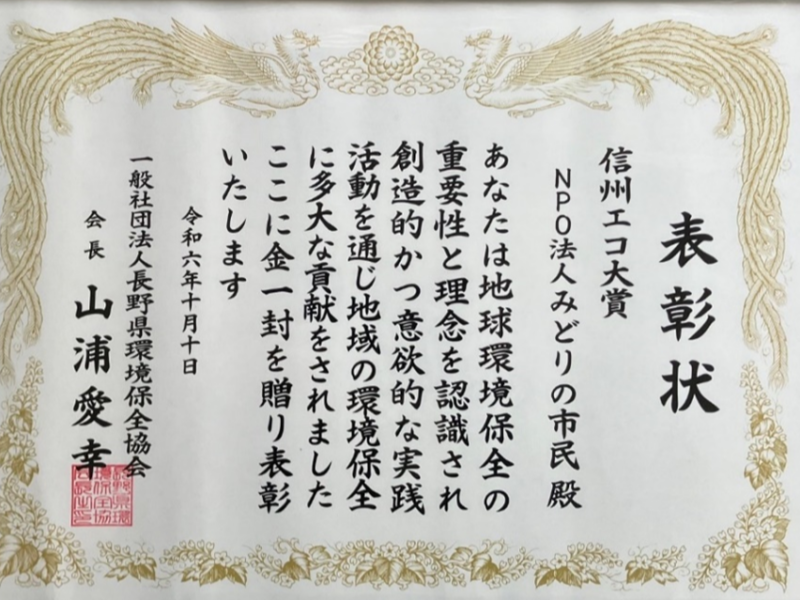 表彰状
信州エコ大賞
NPO法人みどりの市民 殿
あなたは地球環境保全の
重要性と理念を認識され
創造的かつ意欲的な実践
活動を通じ地域の環境保全
に多大な貢献をされました
ここに金一封を贈り表彰
いたします
令和六年十月十日
一般社団法人長野県環境保全協会
会長 山浦愛幸